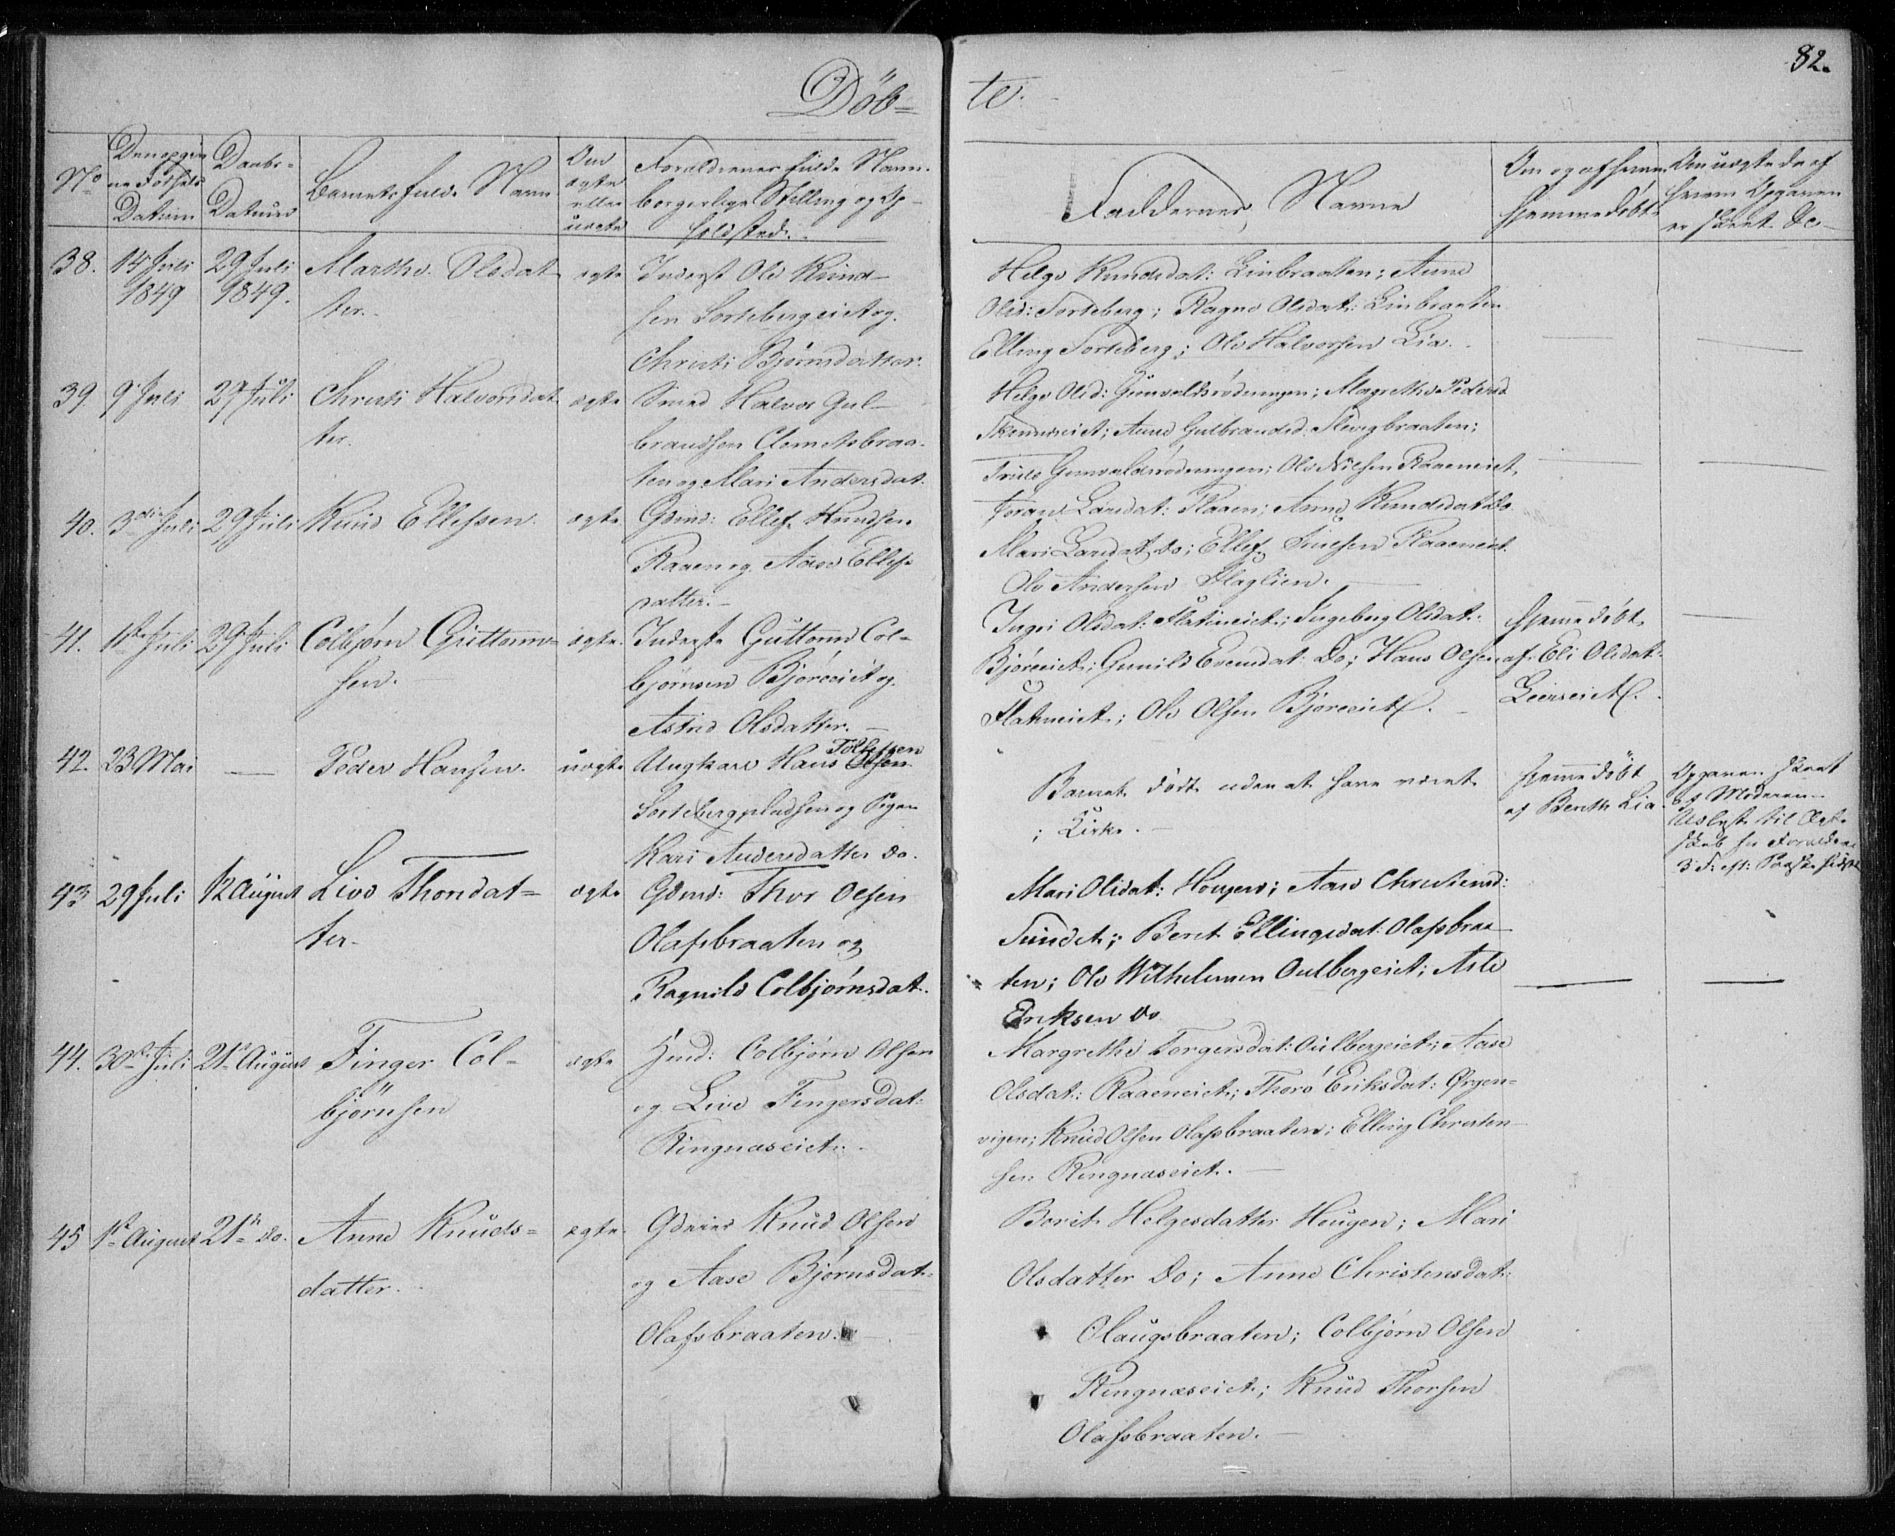 82.
Döb-
te.
No
Den opgivne Fødsels Datum
Daabs-Datums
Barnets fulde Navn
Om ægte eller uægte
Forældrenes fulde Navn, borgerlige Stilling og Opholdsted.
Faddernes Navne
Om og af hvem hjemmedøbt
Om uægte da af hvem Opgaven er skeet &c
38. 14 Juli 1849
29 Juli 1849.
Marthe Olsdat
ter.
ægte
Inderst Ole Knud-
sen Sortebergeiet og
Christi Bjørnsdatter.
Helge Knudsdat: Linbraaten; Anne
Olsd: Sorteberg; Ragne Olsdat: Linbraaten
Elling Sorteberg; Ole Halvorsen Lia.
39 9 Juli
29 Juli
Christi Halvorsdat
ter.
ægte
Smed Halvor Gul-
brandsen Clemetsbraa-
ten og Mari Andersdat.
Helge Olsd: Gunvaldsrødningen; Magrethe Pedersd
Anne Gulbrandsd:
Truls Gunvaldsrødningen; Ole Nilsen Raaeneiet,
40. 3die Juli
29 Juli
Knud Ellefsen.
ægte
Gdmd: Ellef Knudsen
Raaen og Aase Ellefs
datter.
Joran Larsdat: Raaen; Anne Knudsdat Do
Mari Larsdat Do; Ellef Raaeneiet
Ole Andersen Haglien.
41. 1ste Juli
29 Juli
Colbjørn Guttorm-
sen.
ægte.
Inderste Guttorm Col-
bjørnsen Bjøreeiet og
Astrid Olsdatter.
Ingri Olsdat: Flatineiet; Ingeborg Olsdat:
Bjøreeiet; Gunild Evensdat: Do; Hans Olsen
Flatineiet; Ole Olsen Bjøreeiet.
Hjemmedøbt
af Eli Olsdat:
42. 23 Mai
Peder Hansen.
uægte
Tollefsen
Ungkarl Hans Olsen
Sortebergpladsen og Pigen
Kari Andersdatter do.
Barnet dødt uden at have været
i Kirke.
Hjemmedøbt
af Berith Lia
Opgaven skeet
af Moderen
43 29 Juli
12 August
Live Thorsdat-
ter.
ægte
Gdmd: Thor Olsen
Olafsbraaten og
Ragnild Colbjørnsdat.
Mari Olsdat: Hougen; Aase Christensd:
Sundet; Berit Ellingsdat: Olafsbraa-
ten; Ole Wilhelmsen Oulbergeiet; Asle
Eriksen Do
44. 30te Juli
21de August
Finger Col-
bjørnsen
ægte
Hmd: Colbjørn Olsen
og Live Fingersdat:
Ringnæseiet.
Margrethe Torgersdat: Oulbergeiet; Aase
Olsdat: Raaeneiet; Thorø Eriksdat: Ørgen-
vigen; Knud Olsen Olafsbraaten; Elling Christen-
sen Ringnæseiet.
45 1ste August
21de do.
Anne Knuds-
datter.
ægte.
Knud Olsen
og Aase Bjørnsdat:
Olafsbraaten.
Berit Helgesdatter Hougen; Mari
Olsdatter Do; Anne Christensdat:
Olaugsbraaten; Colbjørn Olsen
Ringnæseiet; Knud Thorsen
Olafsbraaten.